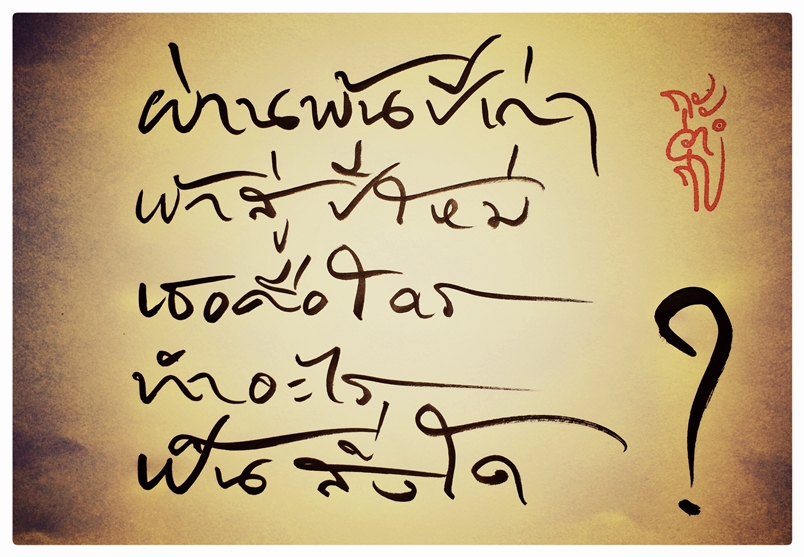 ผ่านพ้นปีเก่า
เข้าสู่ปีใหม่
เธอคือใคร
ทำอะไร
สิ่งใด ?